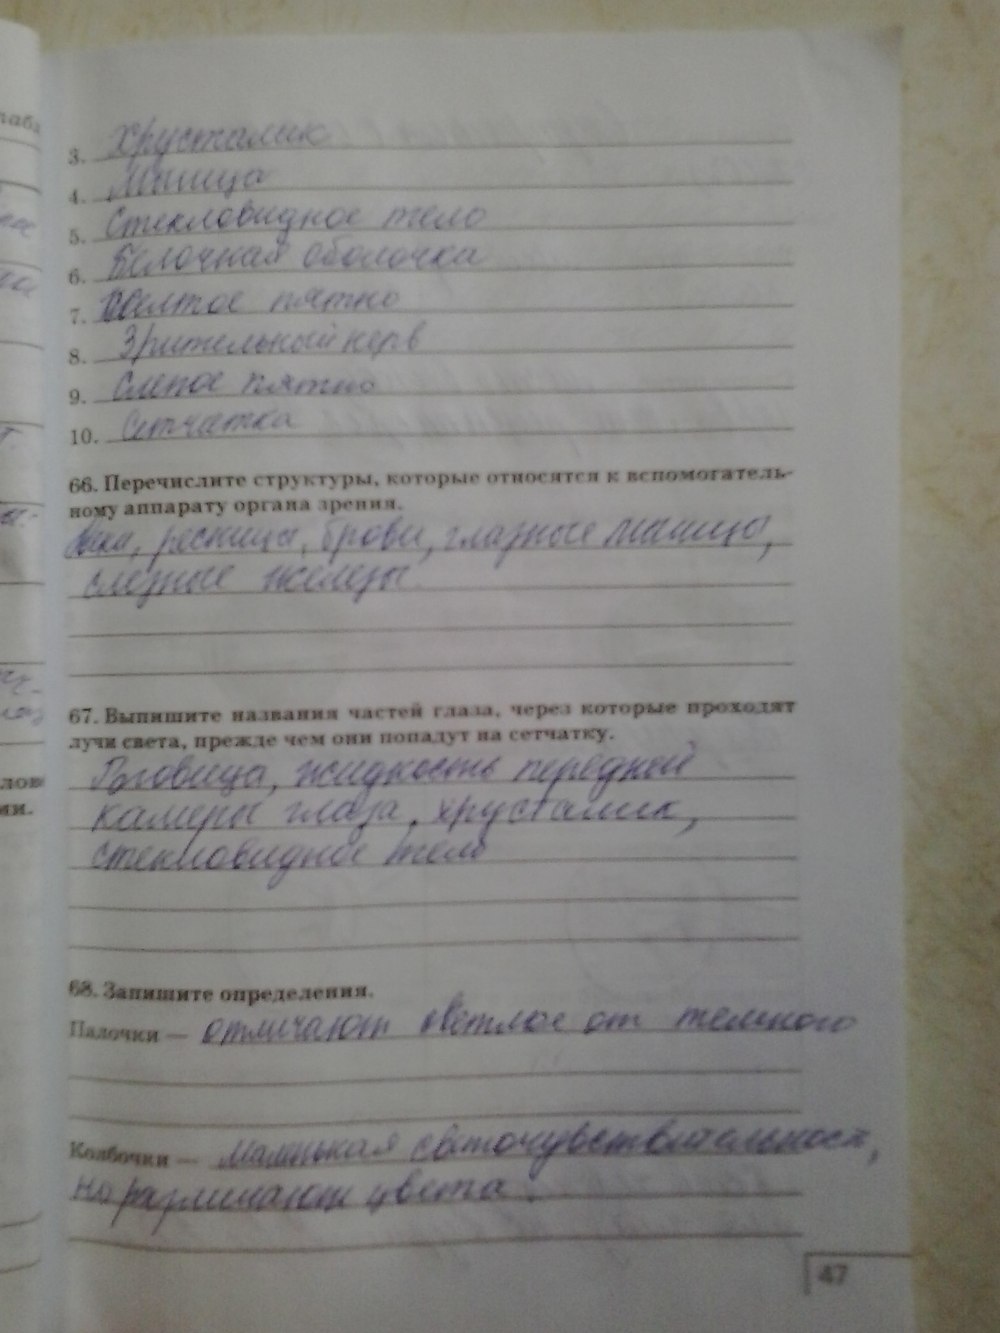 3. Хрусталик
4. Мышца
5. Стекловидное тело
6. Белочная оболочка
7. Желтое пятно
8. Зрительный нерв
9. Слепое пятно
10. Сетчатка
66. Перечислите структуры, которые относятся к вспомогатель-
ному аппарату органа зрения.
Веки, ресницы, брови, глазные мышцы,
слезные железы.
67. Выпишите названия частей глаза, через которые проходят
лучи света, прежде чем они попадут на сетчатку.
Роговица, жидкость передней
камеры глаза, хрусталик,
стекловидное тело
68. Запишите определения.
Палочки — отличают светлое от темного
Колбочки — маленькая светочувствительност,
но различают цвета.
47